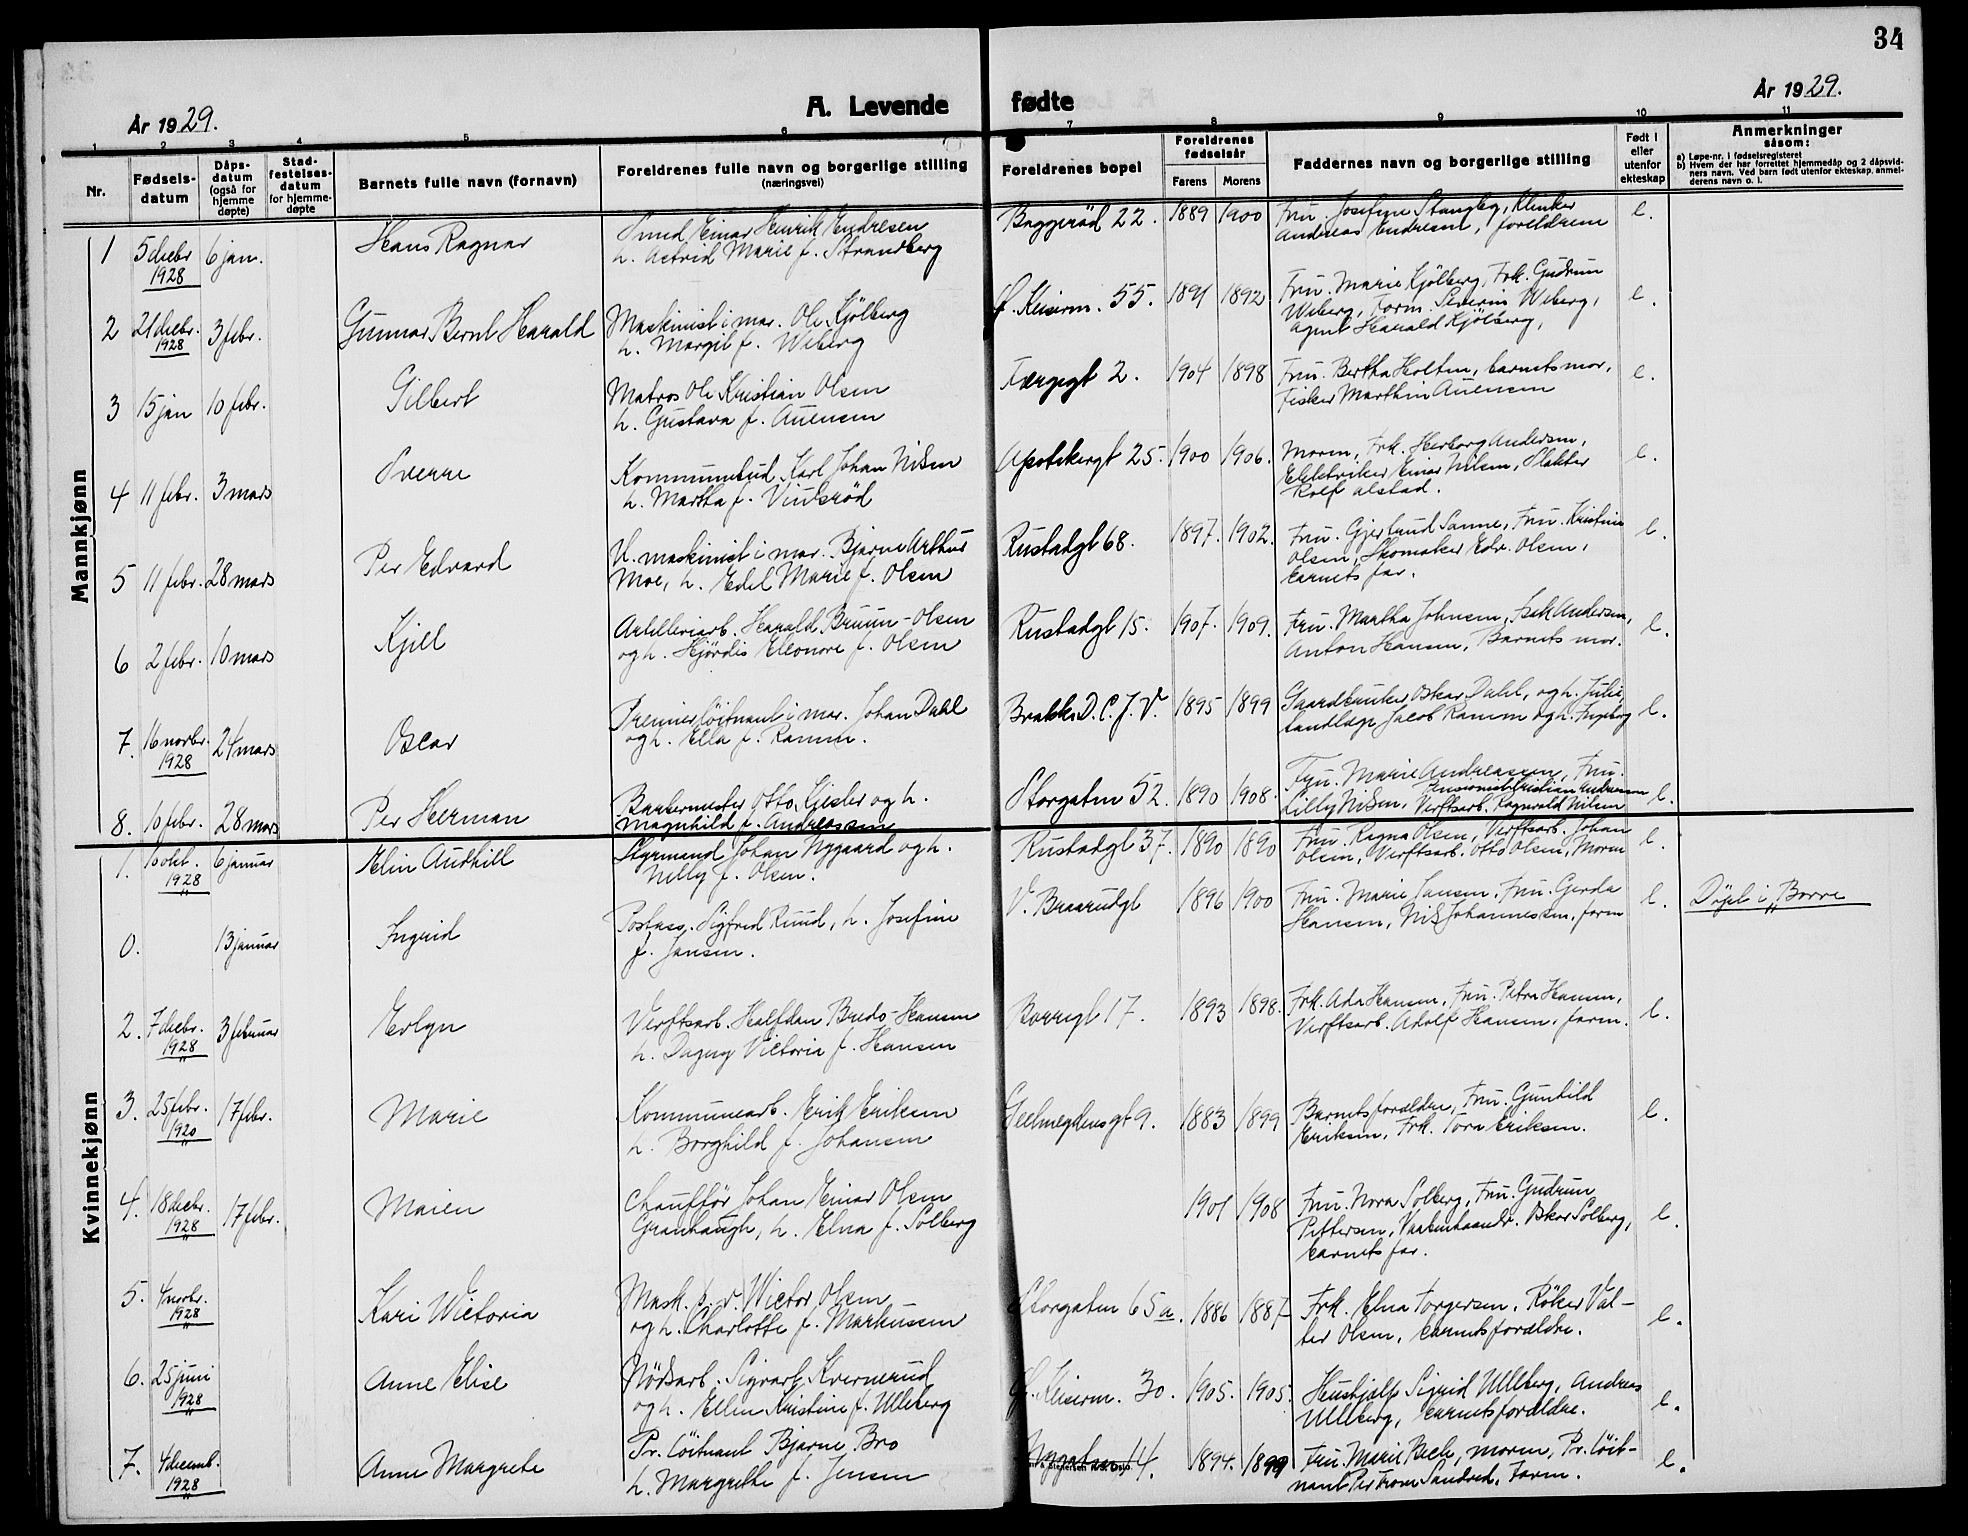 34
År 1929.
A. Levende fødte
År 1929.
1 2 3 4 5 6 7 8 9 10 11
Nr.
Fødsels-
datum
Dåps-
datum
(også for
hjemme
døpte)
Stad-
festelses-
datum
for hjemme-
døpte
Barnets fulle navn (fornavn)
Foreldrenes fulle navn og borgerlige stilling
(næringsvei)
Foreldrenes bopel
Foreldrenes
fødselsår
Farens Morens
Faddernes navn og borgerlige stilling
Født i
eller
utenfor
ekteskap
Anmerkninger
såsom:
a) Løpe-nr. i fødselsregisteret
b) Hvem der har forrettet hjemmedåp og 2 dåpsvid-
ners navn. Ved barn født utenfor ekteskap, anmel-
derens navn o. l.
Mannkjønn
1 5 decbr 1928 6 jan. Hans Ragnar
Smed Einar Henrik Endresen
h. Astrid Marie f. Strandberg
Baggerød 22. 1889 1900
Fru. Josefine Stangeby, Klinker
Andreas Endresen, foreldrene
e.
2 21 decbr. 1928 3 febr. Gunnar Bernt Harald
Maskinist i mar. Ole Kjölberg
h. Margit f. Wiberg
Keiserm. 55. 1891 1892
Fru. Marie Kjölberg, Frk. Gudrun
Wiberg, Form. Severin Wiberg,
agent Harald Kjölberg,
e.
3 15 jan 10 febr. Gilbert
Matros Ole Kristian Olsen
h. Gustava f. Auensen
Færgegt 2. 1904 1898
Fru. Bertha Holten, barnets mor,
Fisker Marthin Auensen
e.
4 11 febr. 3 mars Sverre
Kommunebud Karl Johan Nilsen
h. Martha f. Vindsrød
Apotekergt 25. 1900 1906.
Moren, Frk. Herborg Andersen,
Elektriker Einar Nilsen, Slakter
Rolf Alstad.
e.
5 11 febr. 28 mars Per Edvard
U. maskinist i mar. Bjarne Arthur
Moe, h. Edel Marie f. Olsen
Rustadgt 68. 1897. 1902.
Fru. Gjertrud Sanne, Fru. Kristine
Olsen, Skomaker Edv. Olsen,
barnets far.
e.
6 2 febr. 10 mars Kjell
Artilleriarb. Harald Bruun-Olsen
og h. Hjördis Eleonore f. Olsen
Rustadgt 15. 1907. 1909.
Fru. Martha Johnsen, Isak Andersen,
Anton Hansen, Barnets mor.
e.
7. 16 novbr. 1928 24 mars Oscar
Premierlöitnant i mar. Johan Dahl
og h. Ella f. Ramm.
Brakke D. C. J. V. 1895 1899
Gaardbruker Oskar Dahl, og h. Julie,
tandlæge Jacob Ramm og h. Ingeborg
e.
8. 10 febr. 28 mars Per Herman
Barbermester Otto Kjesler og h.
Magnhild f. Andreassen
Storgaten 52. 1890 1908.
Fru. Marie Andreassen, Fru.
Pensionist Kristian Andreassen
Lilly Nilsen, Verftsarb. Ragnvald Nilsen
e.
Kvinnekjønn
1. 10 okt. 1928 6 januar Elin Audhill
Styrmand Johan Nygaard og h.
Nelly f. Olsen.
Rustadgt 37. 1890 1890
Fru. Ragna Olsen, Verftsarb. Johan
Olsen, Verftsarb. Otto Olsen, Moren
e.
0. 13 januar Ingrid
Postass. Sigfred Ruud, h. Josefine
f. Jansen.
V. Braarudgt 1896 1900
Fru. Marie Jansen, Fru. Gerda
Hansen, Nils Johannessen, faren
e. Döpt i Borre
2. 7 decbr. 1928 3 februar Evlyn
Verftsarb. Halfdan Bredo-Hansen
h. Dagny Victoria f. Hansen
Borregt 17. 1893 1898.
Frk. Ada Hansen, Fru. Petra Hansen,
Verftsarb. Adolf Hansen, faren.
e.
3. 25 febr. 1920 17 febr. Marie
Kommunearb. Erik Eriksen
h. Borghild f. Johansen
Geelmeydensgt 9. 1883 1899
Barnets foreldre, Fru. Gunhild
Eriksen, Frk. Tora Eriksen.
e.
4. 18 decbr. 1928 17 febr. Maien
Chaufför Johan Einar Olsen
Granhaugh, h. Elna f. Solberg
1901 1908
Fru. Nora Solberg, Fru. Gudrun
Pettersen, Oskar Solberg,
barnets far.
e.
5. 4 novbr. 1928 Kari Wictoria
Mask. Wictor Olsen
og h. Charlotte f. Markussen
Storgaten 65a. 1886 1887
Frk. Elna Torgersen, Röker Val-
ter Olsen, barnets foreldre.
e.
6. 25 juni 1928 Anne Elise
Nödsarb. Sigvart Kvernerud
og h. Ellen Kristine f. Ulleberg
Keiserm. 30. 1905. 1905.
Hushjælp Sigrid Ulleberg, Andreas
Ulleberg, barnets foreldre.
e.
7. 4 decemb. 1928 Anne Margrete
Pr. löitnant Bjarne Bro
h. Margrethe f. Jensen
Nygaten 14. 1894. 1899
Fru. Marie Bech, moren, Pr. löit-
nant Per From Sandved, Faren.
e.